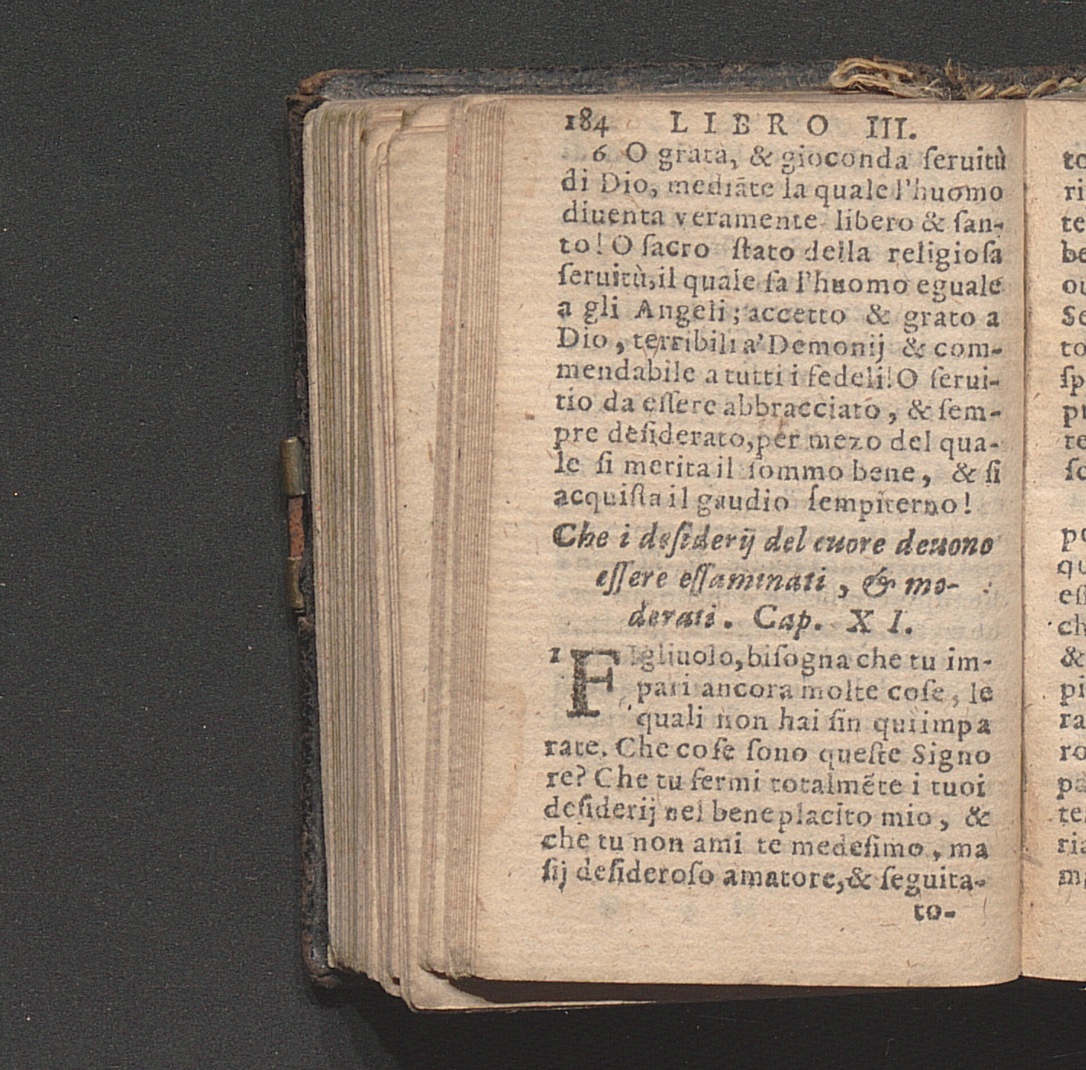 184 LIBRO III.
6 O grata, & gioconda ſeruitù
di Dio, mediãte la quale l'huomo
diuenta veramente libero & ſan-
to! O ſacro ſtato della religioſa
ſeruitù, il quale fa l'huomo eguale
a gli Angeli; accetto & grato a
Dio, terribili a' Demonij & com-
mendabile a tutti i fedeli! O ſerui-
tio da eſſere abbracciato, & ſem-
pre deſiderato, per mezo del qua-
le ſi merita il ſommo bene, & ſi
acquiſta il gaudio ſempiterno!
Che i deſiderij del cuore deuono
eſſere eſſaminati, & mo-
derati. Cap. XI.
1 FIgliuolo, biſogna che tu im-
pari ancora molte coſe, le
quali non hai ſin qui impa
rate. Che coſe ſono queſte Signo
re? Che tu fermi totalmẽte i tuoi
deſiderij nel beneplacito mio, &
che tu non ami te medeſimo, ma
ſij deſideroſo amatore, & ſeguita-
to-
to
ri
te
be
ou
Se
to
ſp
pu
te
ſc
po
qu
eſſ
ch
&
pi
ra
ro
pa
te
ria
ma